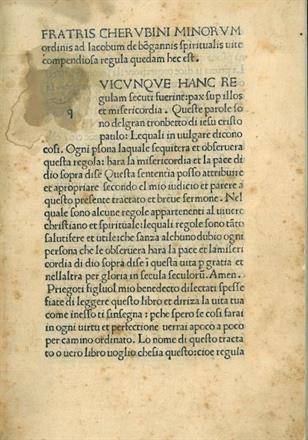 FRATRIS CHERVBINI MINORVM
ordinis ad Iacobum de bõgannis spiritualis uite
compendiosa regula quedam hec est.
q VICVNQVE HANC RE
gulam secuti fuerint: pax sup illos
et misericordia. Queste parole so
no del gran trombetto di iesu cristo
paulo: Le quali in uulgare dicono
cosi. Ogni psona laquale sequitera et obseruera
questa regola: hara la misericordia et la pace di
dio sopra dise Questa sententia posso attribuire
et apropriare secondo el mio iudicio et parere a
questo presente tractato et breue sermone. Nel
quale sono alcune regole appartenenti al uiuere
christiano et spirituale: lequali regole sono tãto
salutifere et utile: che sanza alchuno dubio ogni
persona che le obseruera hara la pace et lamiseri
cordia di dio sopra dise: i questa uita p gratia et
nellaltra per gloria in secula seculorũ. Amen.
Priegoti figluol mio benedecto dilectati spesse
fiate di leggere questo libro et diriza la uita tua
come inesso ti sinsegna: pche spero se cosi farai
in ogni uirtu et perfectione uerrai apoco a poco
per camino ordinato. Lo nome di questo tracta
to o uero libro uoglio che sia questo: cioe regula